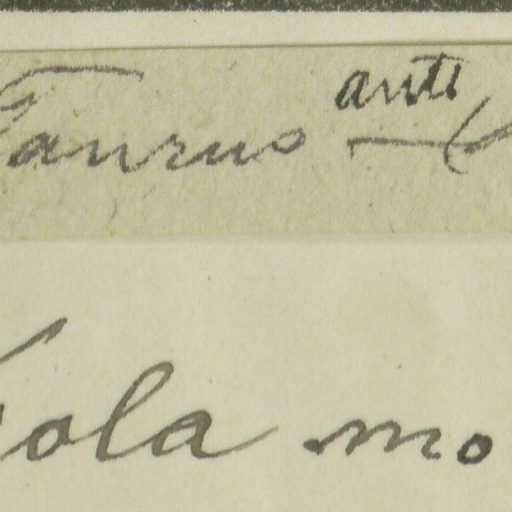 Taurus anti
iola mo